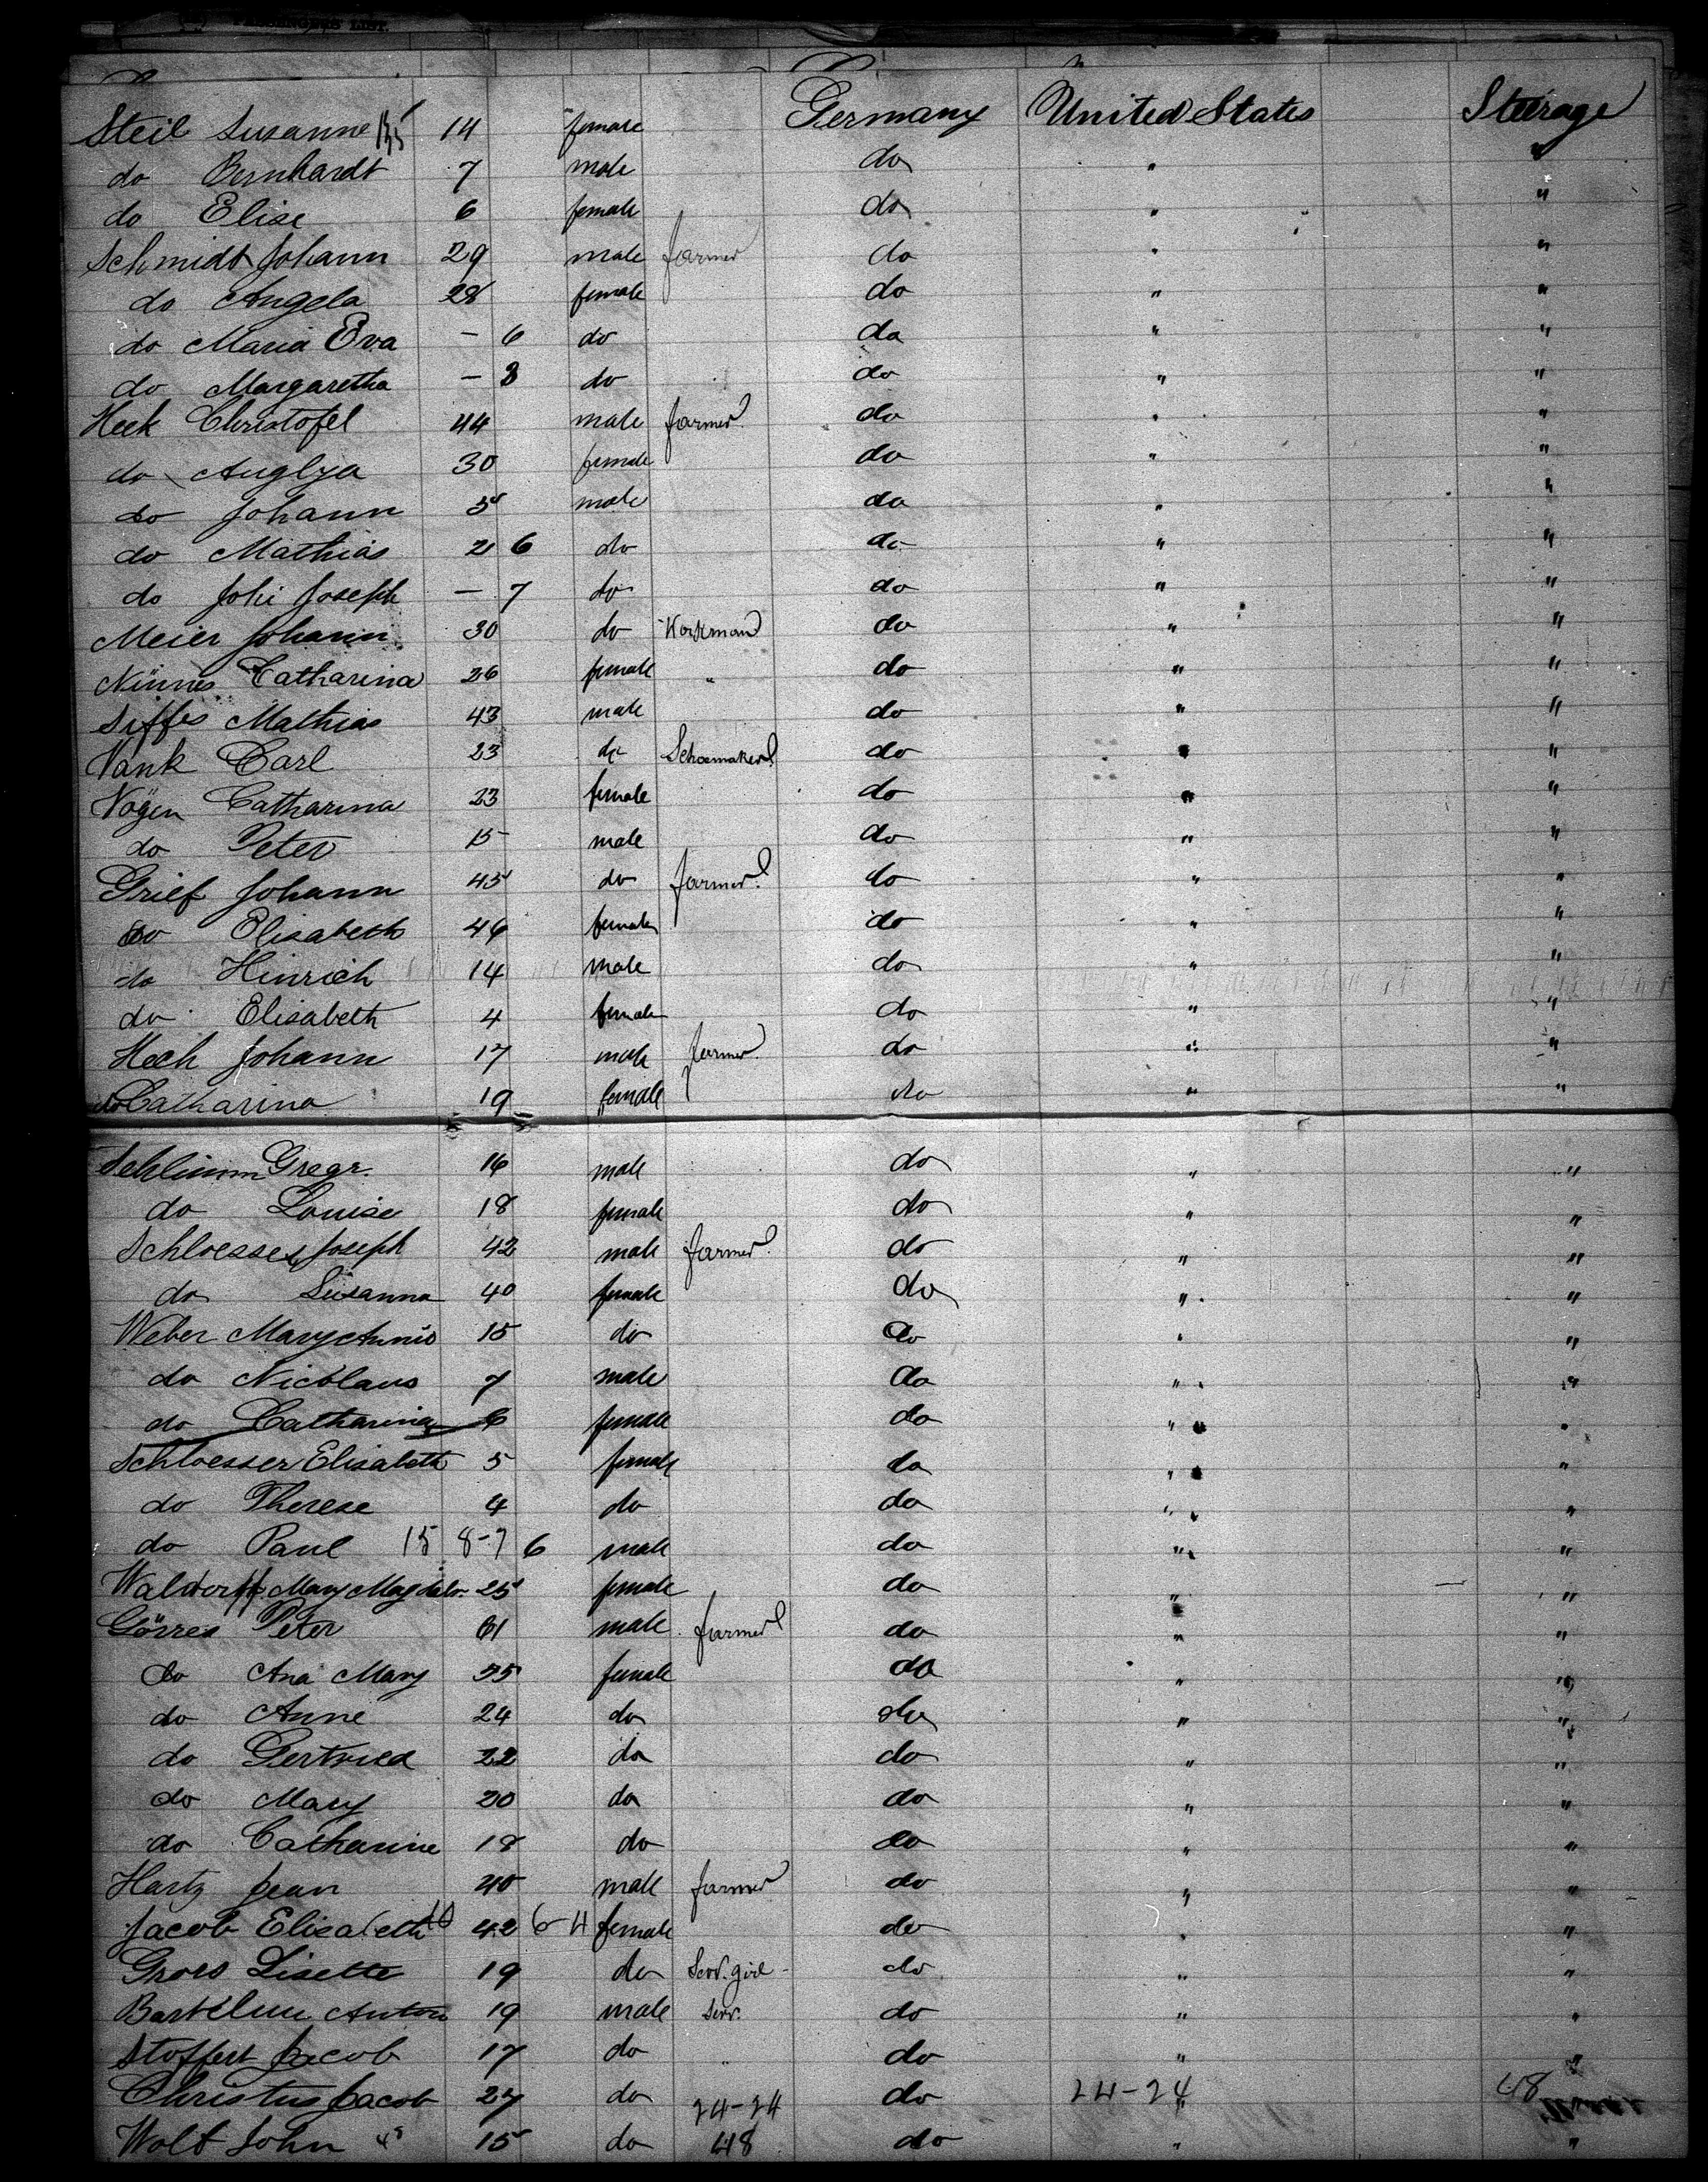 PASSENGERS LIST.
Steil Susanne 14 female Germany United States Steerage
do Bernhardt 7 male do " "
do Elise 6 female do " "
Schmidt Johann 29 male farmer do " "
do Angela 28 female do " "
do Maria Eva - 6 do do " "
do Margaretha - 8 do do " "
Heck Christofel 44 male farmer do " "
do Anglya 30 female do " "
do Johann 5 male do " "
do Mathias 2 6 do do " "
do Joh. Joseph - 7 do do " "
Meier Johann 30 do Workman do " "
Ninnes Catharina 26 female " do " "
Siffes Mathias 43 male do " "
Vank Carl 23 do Schoemaker do " "
Vögen Catharina 23 female do " "
do Peter 15 male do " "
Grief Johann 45 do farmer do " "
do Elisabeth 46 female do " "
do Hinrich 14 male do " "
do Elisabeth 4 female do " "
Hech Johann 17 male farmer do " "
do Catharina 19 female do " "
Schlimm Gregr. 16 male do " "
do Louise 18 female do " "
Schloesser Joseph 42 male farmer do " "
do Susanna 40 female do " "
Weber Mary Annie 15 do do " "
do Nicolaus 7 male do " "
do Catharina 6 female do " "
Schloesser Elisabeth 5 female do " "
do Therese 4 do do " "
do Paul 15 8-7 6 male do " "
Waldorff Mary Magdaln. 25 female do " "
Görres Peter 61 male farmer do " "
do Ana Mary 55 female do " "
do Anne 24 do do " "
do Gertrued 22 do do " "
do Mary 20 do do " "
do Catharine 18 do do " "
Hartz Jean 40 male farmer do " "
Jacob Elisabeth 42 6-4 female do " "
Gross Lisette 19 do Serv. girl do " "
Barthelme Anton 19 male Serv. do " "
Stoffert Jacob 17 do " do " "
Christus Jacob 27 do 24-24 do 24-24 48
Wolt John 15 do 48 do " "